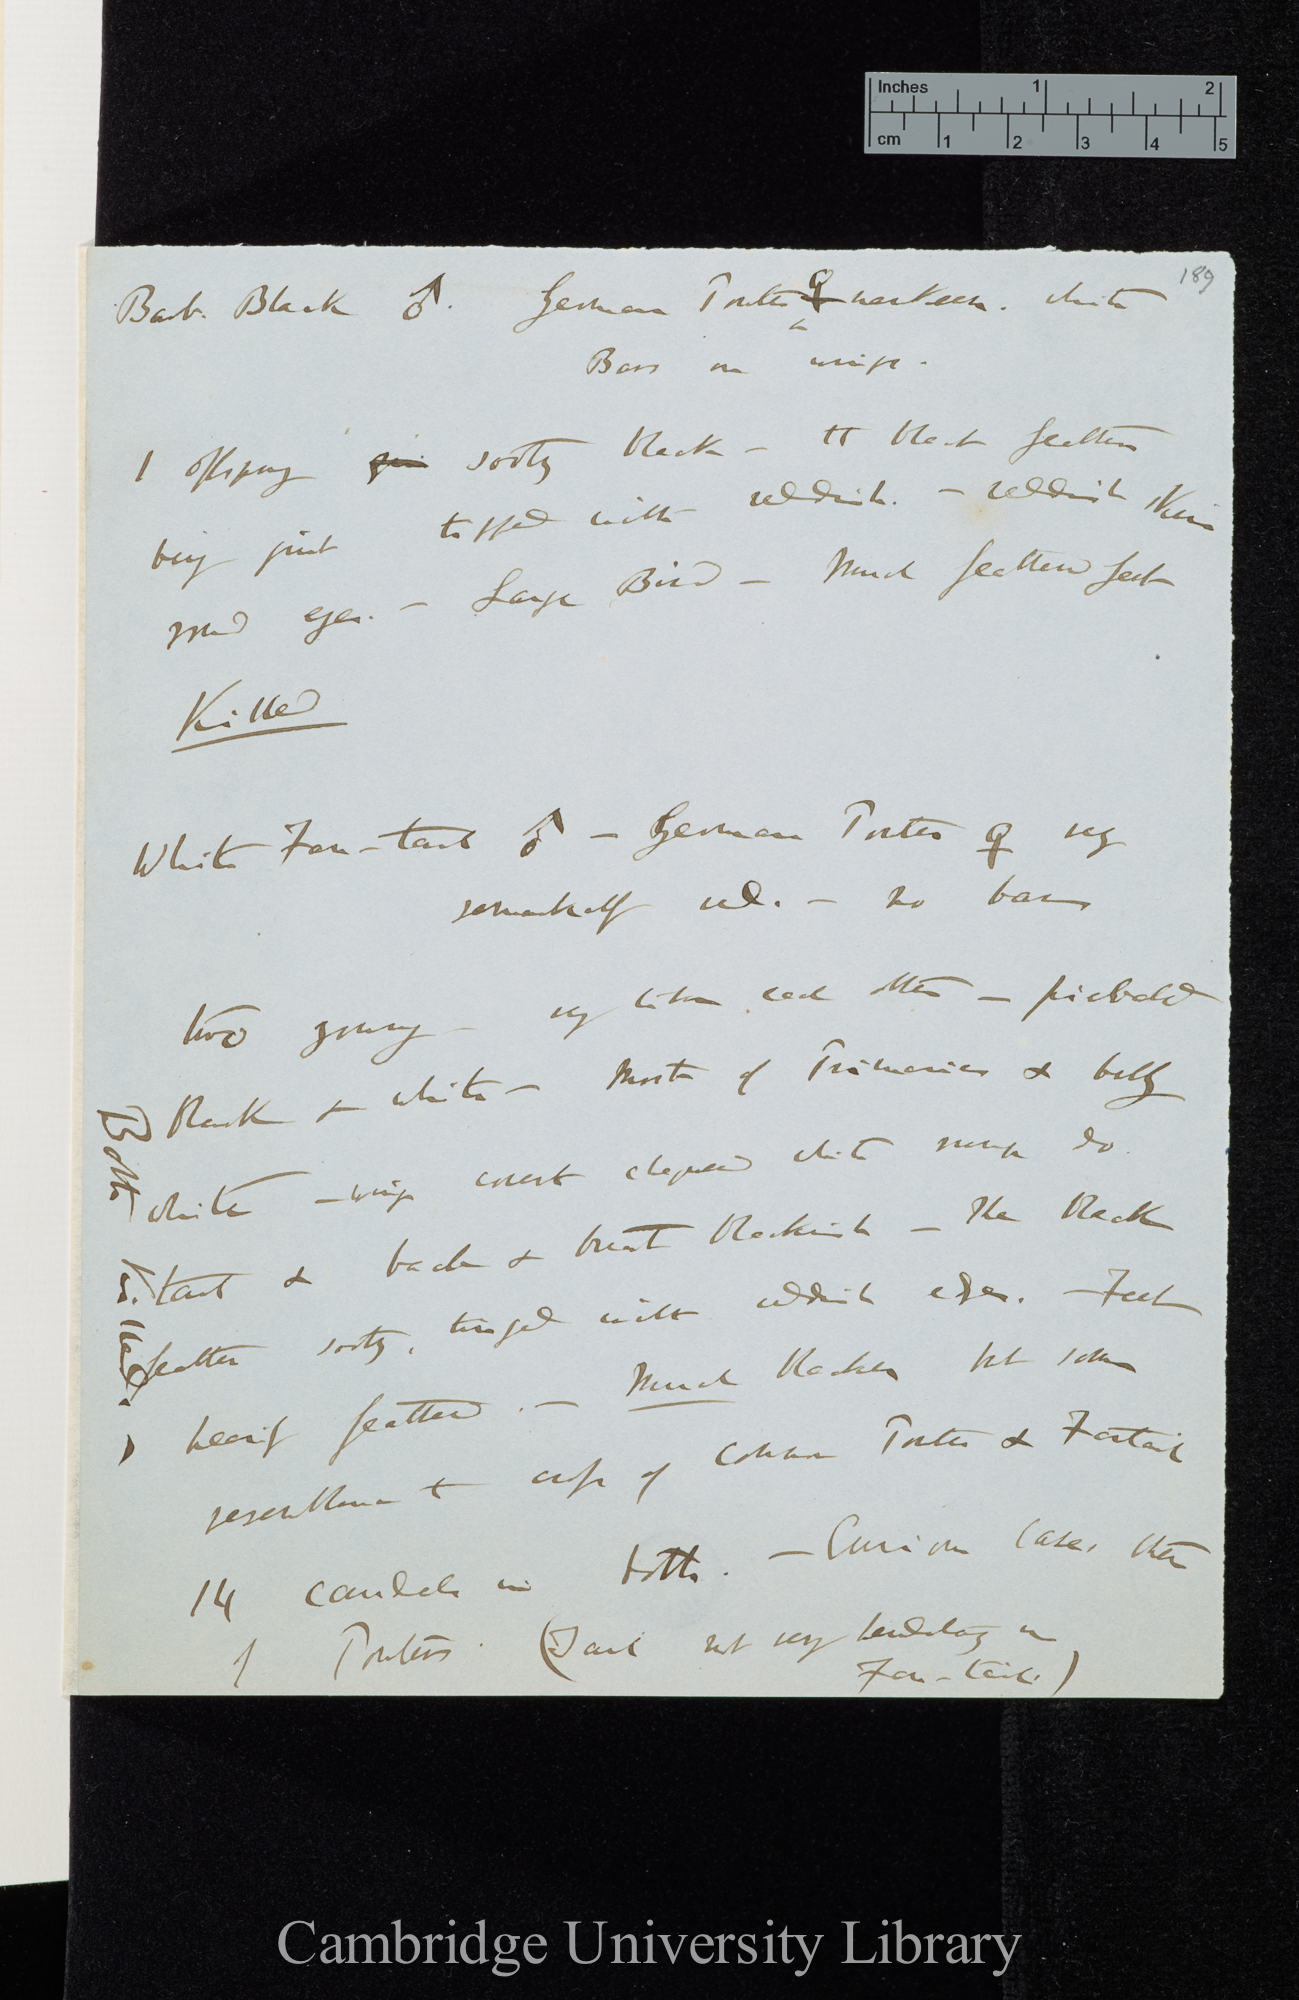 Inches 1 2
cm 1 2 3 4 5
189
Barb. Black ♂. German Pouter ♀ nankeen. white
Bars on wings.
1 offspring sooty black — the black feathers
being just tipped with reddish. — reddish skin
round eyes. — Large Bird — Much feathered feet
Killed
White Fan-tail ♂ — German Pouter ♀ very
remarkably red. — no bars
two young — very like each other — piebald
black & white — Most of Primaries & belly
white — wing covert white rump do.
tail & back & breast blackish — the black
feather sooty, tinged with reddish edges. — Feet
heavily feathered. — Much blacker but some
resemblance to cross of common Pouter & Fantail
14 caudals in both. — Curious case, then
of Pouters. (Tail not very tendency in
Fan-tail.)
Both killed.
Cambridge University Library